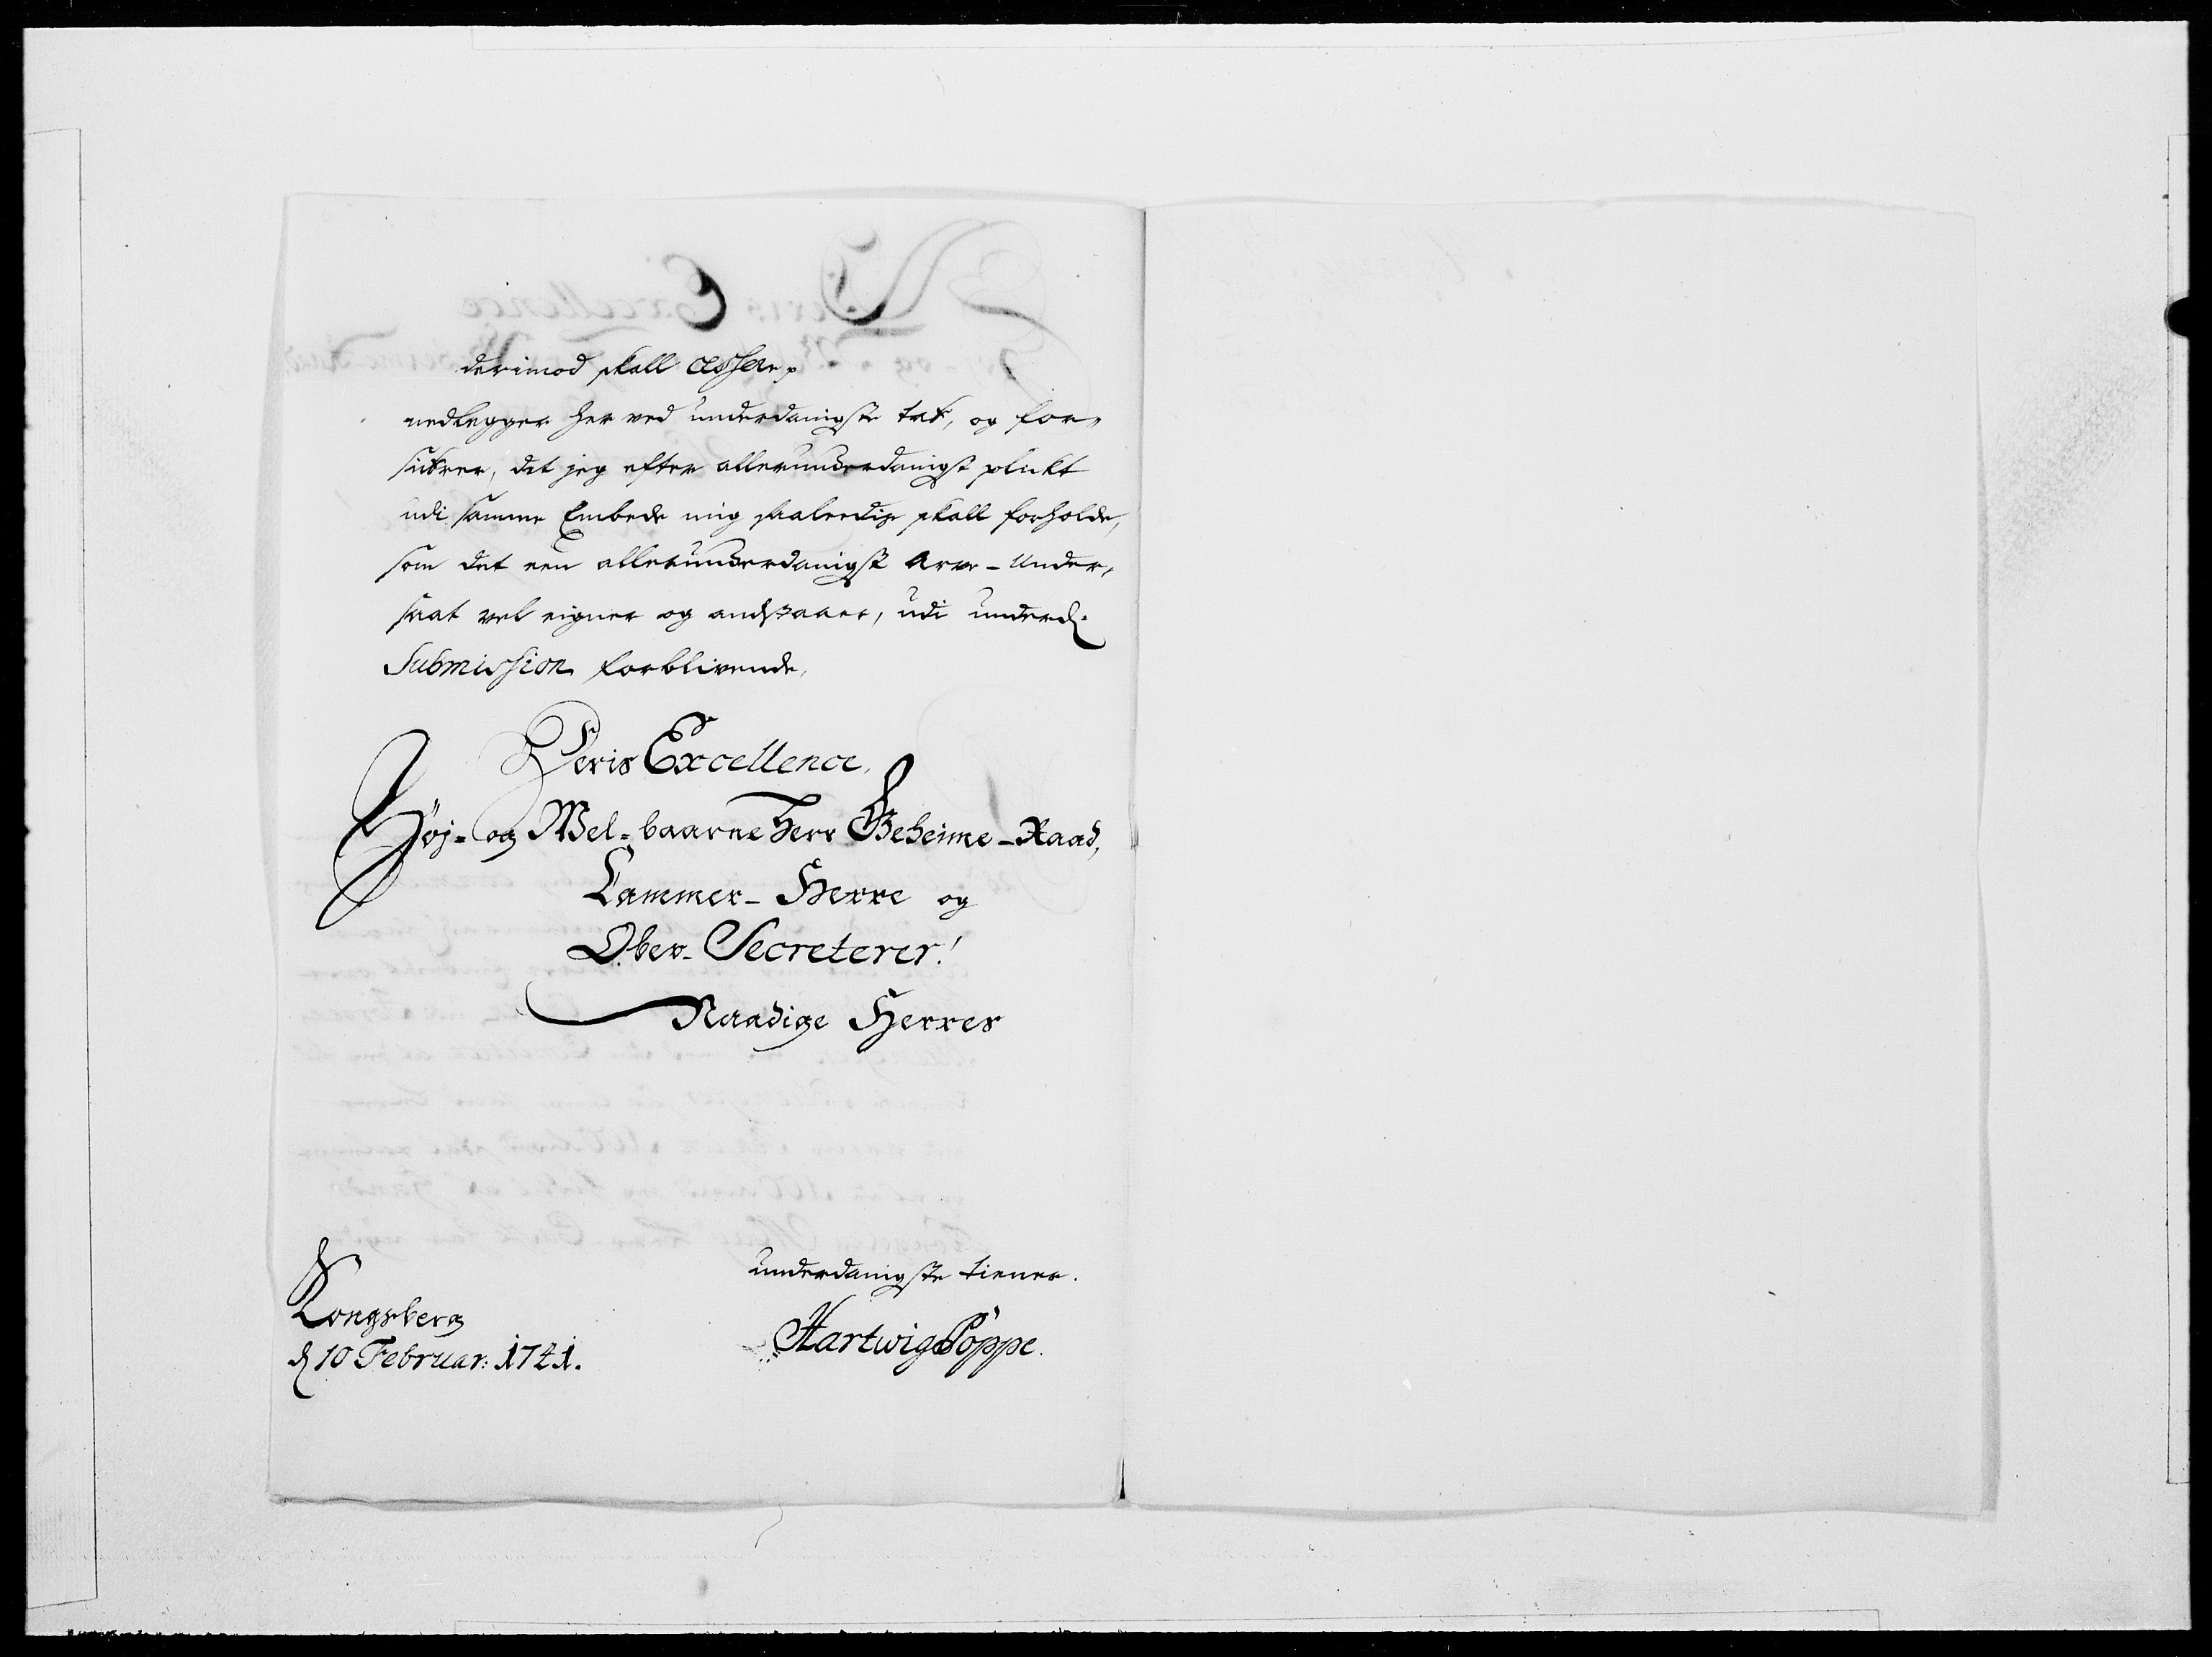 derimod skall cessere,
nedlegger her ved underdanigste tak, og for„
sikrer, det jeg efter allerunderdanigst plickt
udi samme Embede mig saaledis skall forholde,
som det een allerunderdanigst Arve-Under,
saat vel eigner og anstaaer, udi underd:
Submission forblivende,
Deris Excellence,
Høj- og Wel-baarne Herr Geheime-Raad,
Cammer-Herre og
Ober-Secreterer!
Naadige Herres
underdanigste tiener.
Kongsberg
d 10 Februar: 1741.
Hartwig Pöppe.